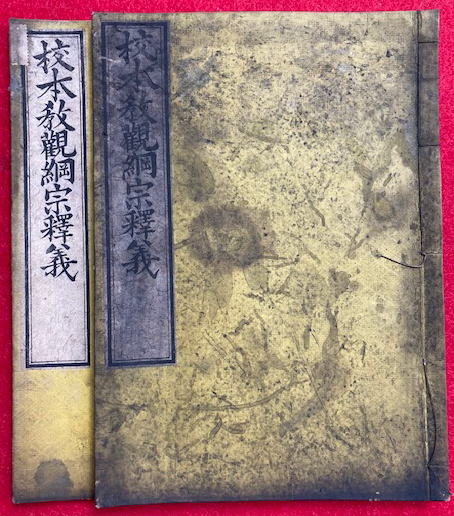 校本教觀綱宗釋義
校本教觀綱宗釋義